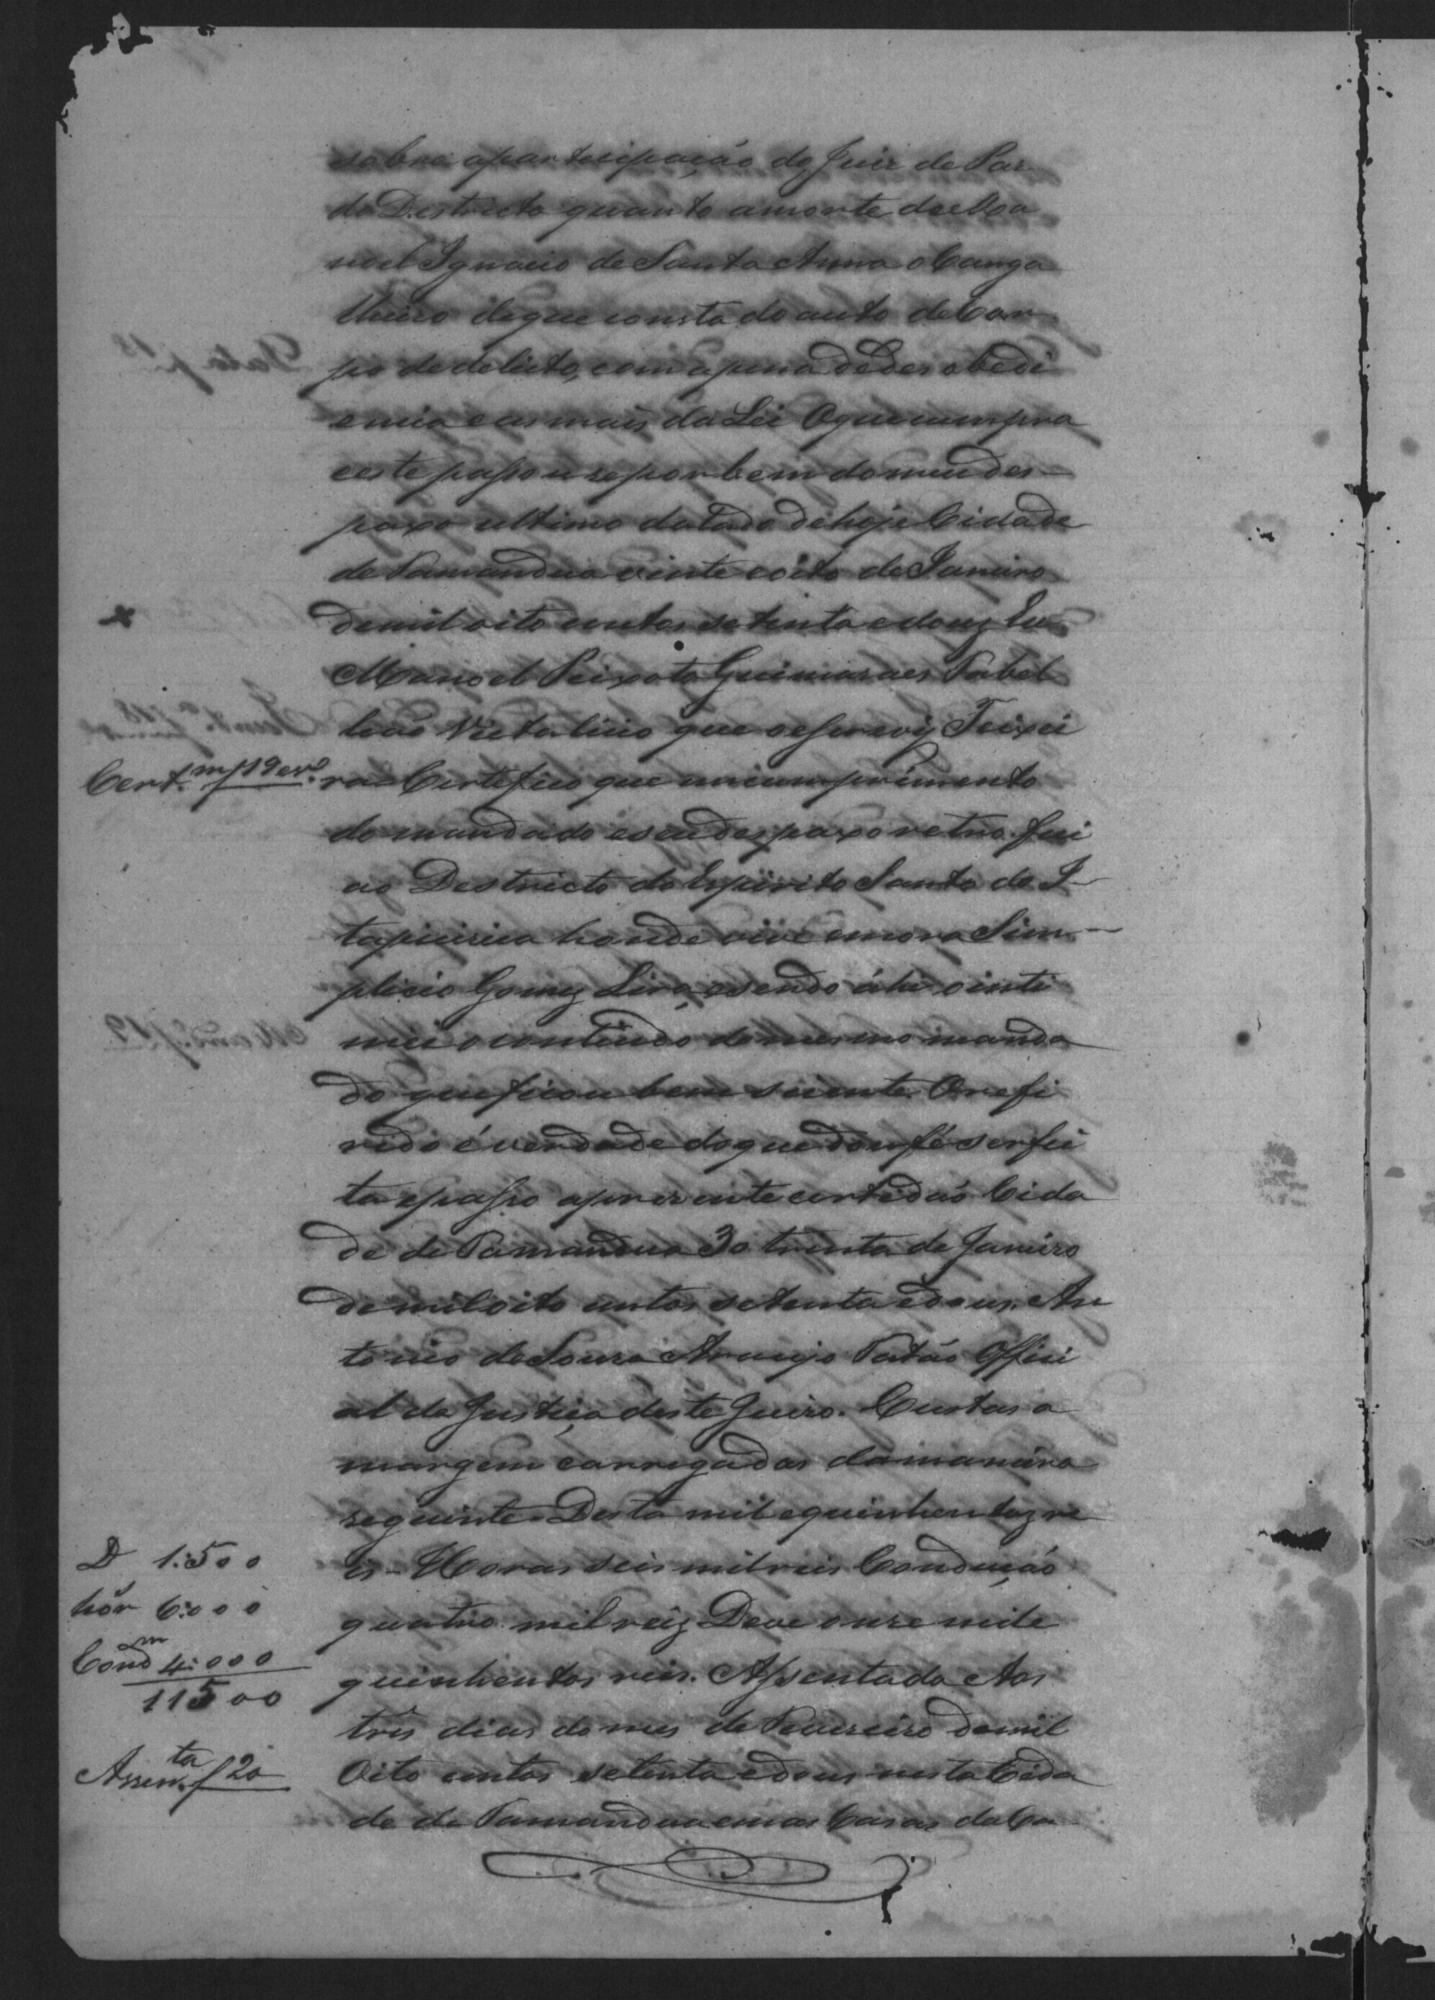 sobre apartecipação do Juiz de Paz
do Destricto quanto amorte de Ma
noel Ignacio de Santa Anna o Canga
lheiro deque consta do auto de Cor
po de delicto, com apena de Desobedi
encia e as mais da Lei Oque cumpra
este passou se por bem do meu des-
paxo ultimo datado de hoje Cidade
de Tamandua vinte e oito de Janeiro
de mil oito centos setenta e douz Eu
Manoel Peixoto Guimaraes Tabel
leão Vitalicio que oescrevy Teixei
Cert.m f19 ev.o ra - Certefico que em cumprimento
do mandado e seu despaxo retro fui
ao Destricto do Espirito Santo de I-
tapicirica honde vive emora Sim-
plicio Gomez Lira, e sendo áhi o inti
mei o contiudo do mesmo manda
do que ficou bem siente. O refi
rido é verdade do que dou fé ser fei
ta epasso aprezente certidão Cida
de de Tamandua 30 trinta de Janeiro
de mil oito centos setenta e dous. An
tonio de Souza Araujo Patão Offici
al da Justiça deste Juizo. Custas a
margem carregadas da maneira
seguinte Desta mil equinhentoz re
D 1:500 is - Horas seis mil reis Condução
hór 6:000 quatro mil reiz Deve onze mil e
Condm 4:000 quinhentos reis. Assentada Aos
11500 três dias do mes de Feuereiro de mil
Assen.ta f 20 Oito centos setenta e dous nesta Cida
de de Tamandua em as Casas da Ca